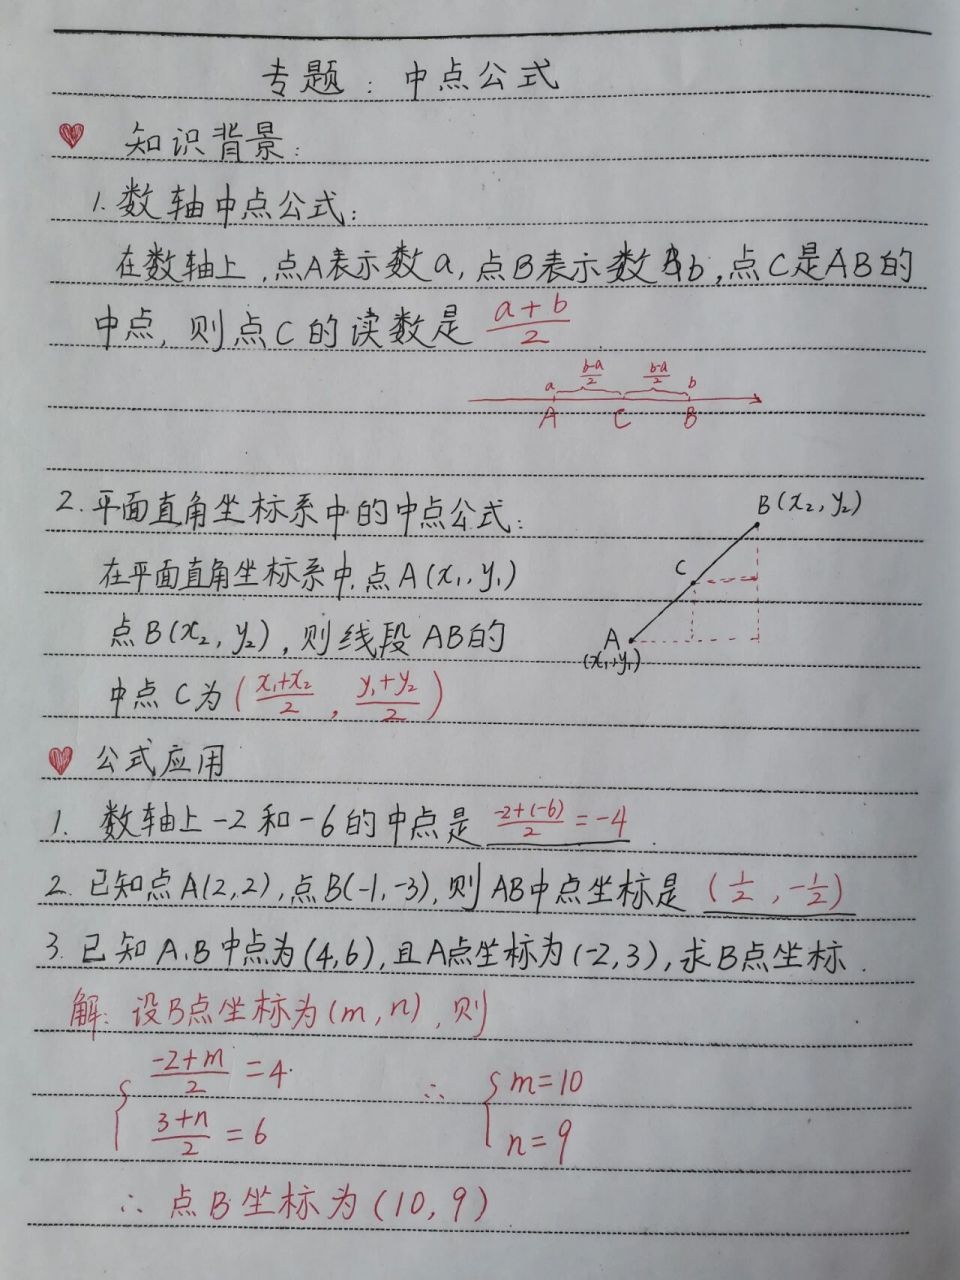 专题：中点公式
知识背景：
1. 数轴中点公式：
在数轴上，点A表示数a，点B表示数b，点C是AB的
中点，则点C的读数是 (a+b)/2
(b-a)/2 (b-a)/2
a b
A C B
2. 平面直角坐标系中的中点公式：
B(x₂, y₂)
在平面直角坐标系中，点A(x₁, y₁)
C
点B(x₂, y₂)，则线段AB的
A
(x₁, y₁)
中点C为((x₁+x₂)/2, (y₁+y₂)/2)
公式应用
1. 数轴上-2和-6的中点是 (-2+(-6))/2 = -4
2. 已知点A(2,2)，点B(-1,-3)，则AB中点坐标是 (1/2, -1/2)
3. 已知A、B中点为(4,6)，且A点坐标为(-2,3)，求B点坐标.
解：设B点坐标为(m, n)，则
{(-2+m)/2 = 4 ∴ {m=10
(3+n)/2 = 6 n=9
∴ 点B坐标为(10,9)